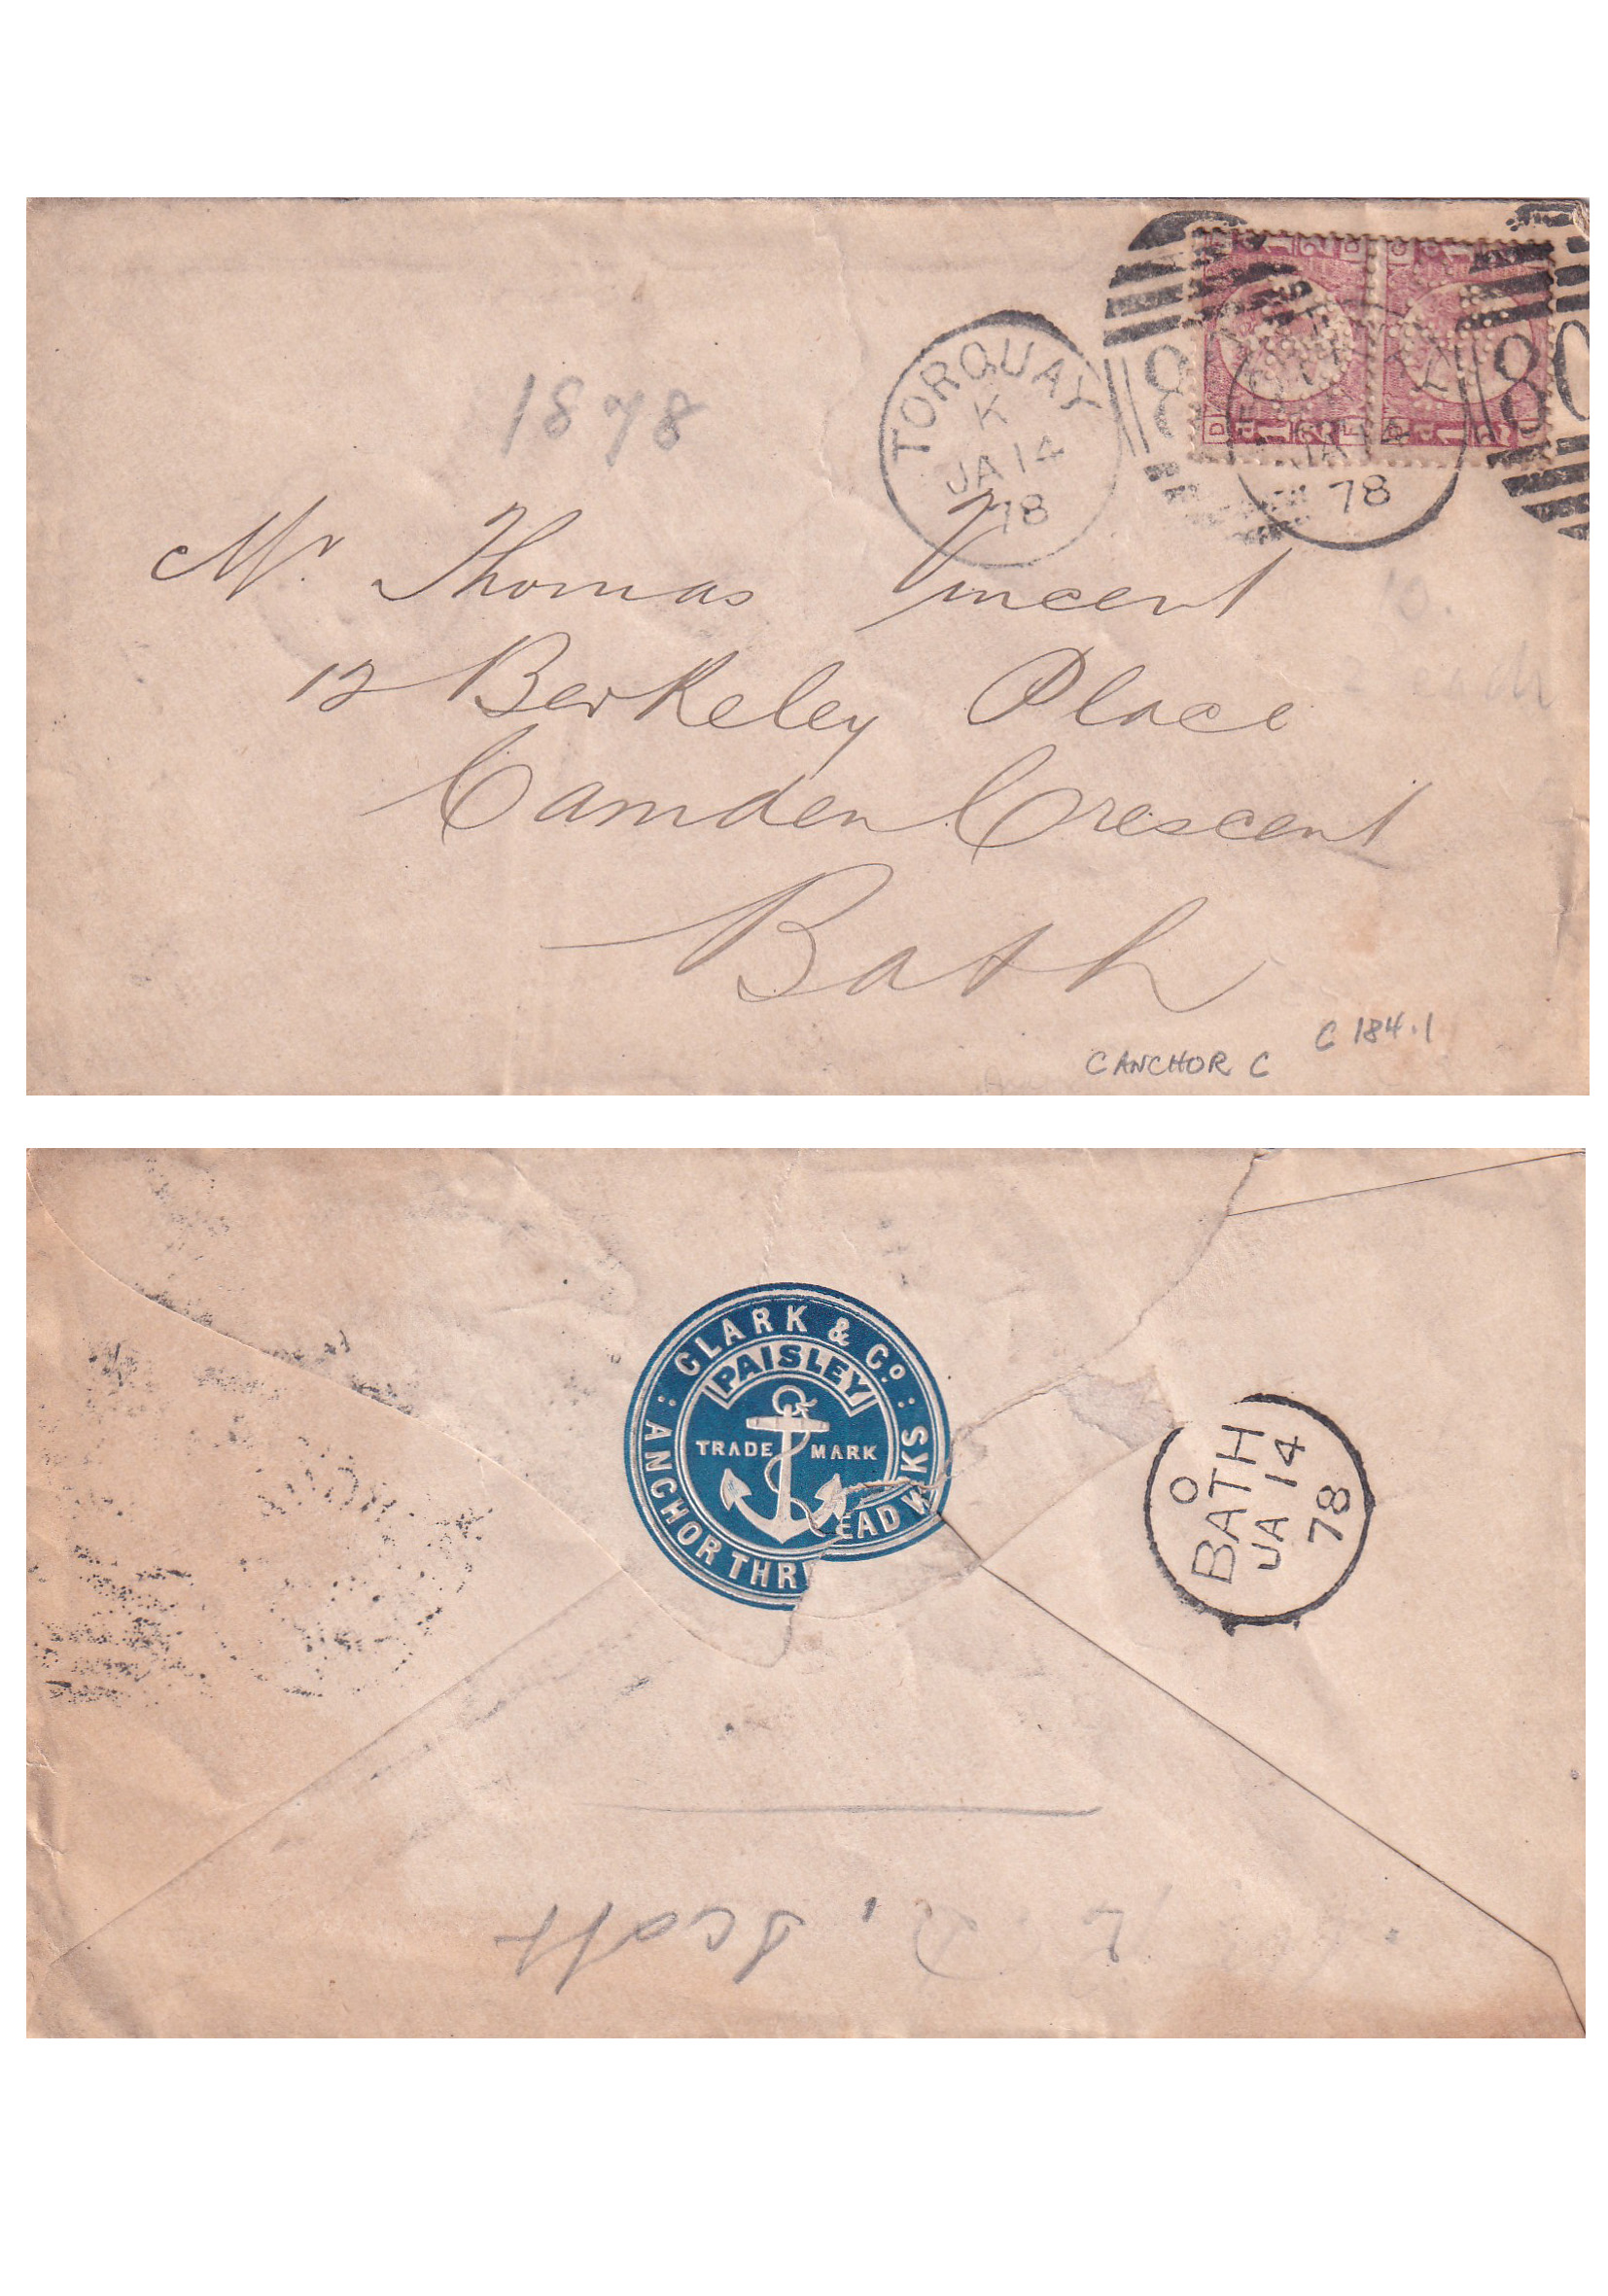 1878
TORQUAY
K
JA 14
78
80
78
Mr. Thomas Vincent
12 Berkeley Place
Camden Crescent
Bath
C ANCHOR C
C 184.1
: CLARK & Co. :
PAISLEY
TRADE MARK
ANCHOR THREAD WKS
O
BATH
JA 14
78
Scott